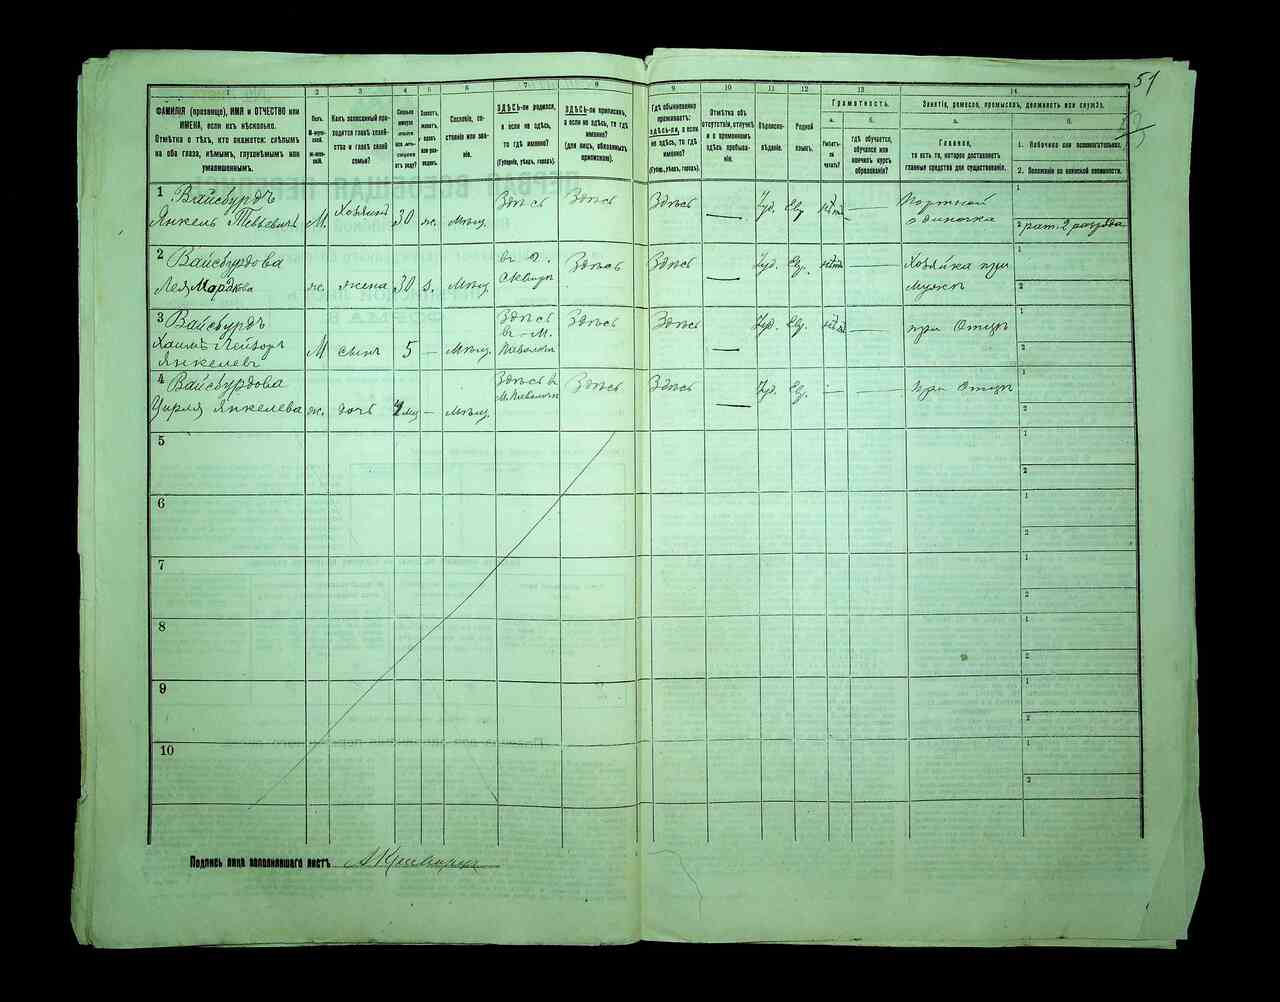 51
1 2 3 4 5 6 7 8 9 10 11 12 13 14
ФАМИЛІЯ (прозвище), ИМЯ и ОТЧЕСТВО или
ИМЕНА, если ихъ нѣсколько.
Отмѣтка о тѣхъ, кто окажется: слѣпымъ
на оба глаза, нѣмымъ, глухонѣмымъ или
умалишеннымъ.
Полъ.
М-муж-
ской.
ж-жен-
скій.
Какъ записанный при-
ходится главѣ хозяй-
ства и главѣ своей
семьи?
Сколько
минуло
лѣтъ
или мѣ-
сяцевъ
отъ роду?
Холостъ,
женатъ,
вдовъ
или раз-
веденъ.
Сословіе, со-
стояніе или зва-
ніе.
ЗДѢСЬ-ли родился,
а если не здѣсь,
то гдѣ именно?
(Губернія, уѣздъ, городъ).
ЗДѢСЬ-ли приписанъ,
а если не здѣсь, то гдѣ
именно?
(для лицъ, обязанныхъ
припиской).
Гдѣ обыкновенно
проживаетъ:
здѣсь-ли, а если
не здѣсь, то гдѣ
именно?
(Губ., уѣздъ, городъ).
Отмѣтка объ
отсутствіи, отлучкѣ
и о временномъ
здѣсь пребыва-
ніи.
Вѣроиспо-
вѣданіе.
Родной
языкъ.
Грамотность.
а. б.
Умѣетъ-
ли
читать?
гдѣ обучается,
обучался или
кончилъ курсъ
образованія?
Занятіе, ремесло, промыселъ, должность или служба.
а. б.
Главное,
то есть то, которое доставляетъ
главныя средства для существованія.
1. Побочное или вспомогательное.
2. Положеніе по воинской повинности.
1 Вайсбурдъ
Янкель Тевьевичъ М. Хозяинъ 30 ж. мѣщ. Здѣсь Здѣсь Здѣсь — Іуд. Евр. нѣтъ — Портной одиночка
1
2 рат. 2 разряда
2 Вайсбурдова
Лея Мордкова ж. жена 30 з. Мѣщ. въ г. Сквирѣ Здѣсь Здѣсь — Іуд. Евр. нѣтъ — Хозяйка при мужѣ
1
2
3 Вайсбурдъ
Хаимъ-Лейзоръ
Янкелевъ М сынъ 5 — Мѣщ. Здѣсь въ М. Паволочи Здѣсь Здѣсь — Іуд. Евр. нѣтъ — при Отцѣ
1
2
4 Вайсбурдова
Цирля Янкелева ж. дочь — Мѣщ. Здѣсь въ М. Паволочи Здѣсь Здѣсь — Іуд. Евр. — — при Отцѣ
1
2
5
1
2
6
1
2
7
1
2
8
1
2
9
1
2
10
1
2
Подпись лица заполнявшаго листъ